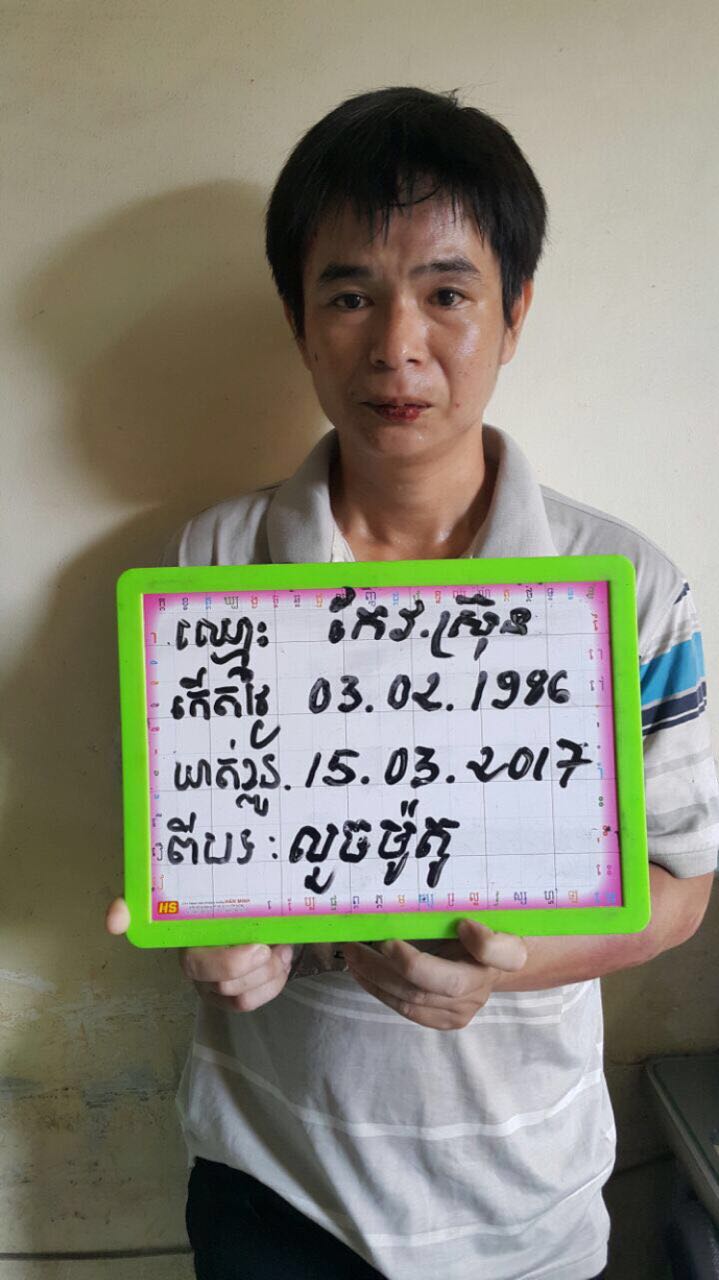 ឈ្មោះ កែវ.ស្រ៊ីន
កើតថ្ងៃ 03.02.1986
ឃាត់ខ្លួន. 15.03.2017
ពីបទ : លួចម៉ូតូ
HS